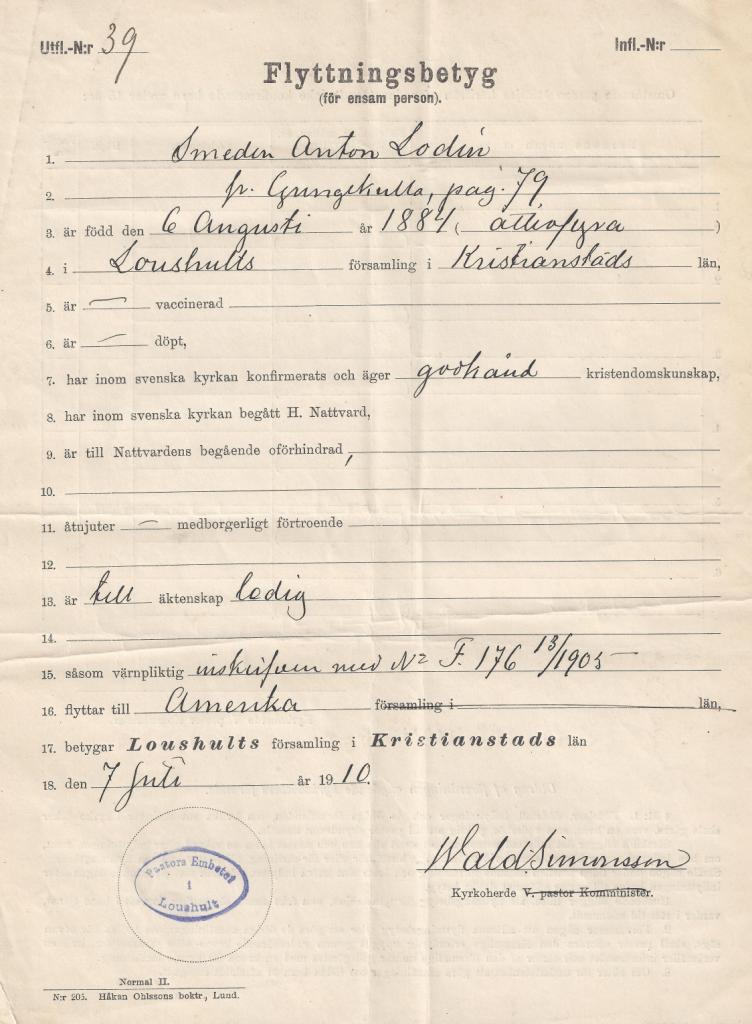 Utfl.-N:r 39
Infl.-N:r
Flyttningsbetyg
(för ensam person).
1. Smeden Anton Lodin
2. fr. Gungekulla, pag. 79
3. är född den 6 Augusti år 1884 (åttiofyra)
4. i Loushults församling i Kristianstads län,
5. är — vaccinerad
6. är — döpt,
7. har inom svenska kyrkan konfirmerats och äger godkänd kristendomskunskap,
8. har inom svenska kyrkan begått H. Nattvard,
9. är till Nattvardens begående oförhindrad,
10.
11. åtnjuter — medborgerligt förtroende
12.
13. är till äktenskap ledig
14.
15. såsom värnpliktig inskrifven med No F. 176 13/1905 —
16. flyttar till Amerika församling i län,
17. betygar Loushults församling i Kristianstads län
18. den 7 Juli år 1910.
Pastors Embetet
i
Loushult
Wald. Simonsson
Kyrkoherde V. pastor Komminister.
Normal II.
N:r 205. Håkan Ohlssons boktr., Lund.